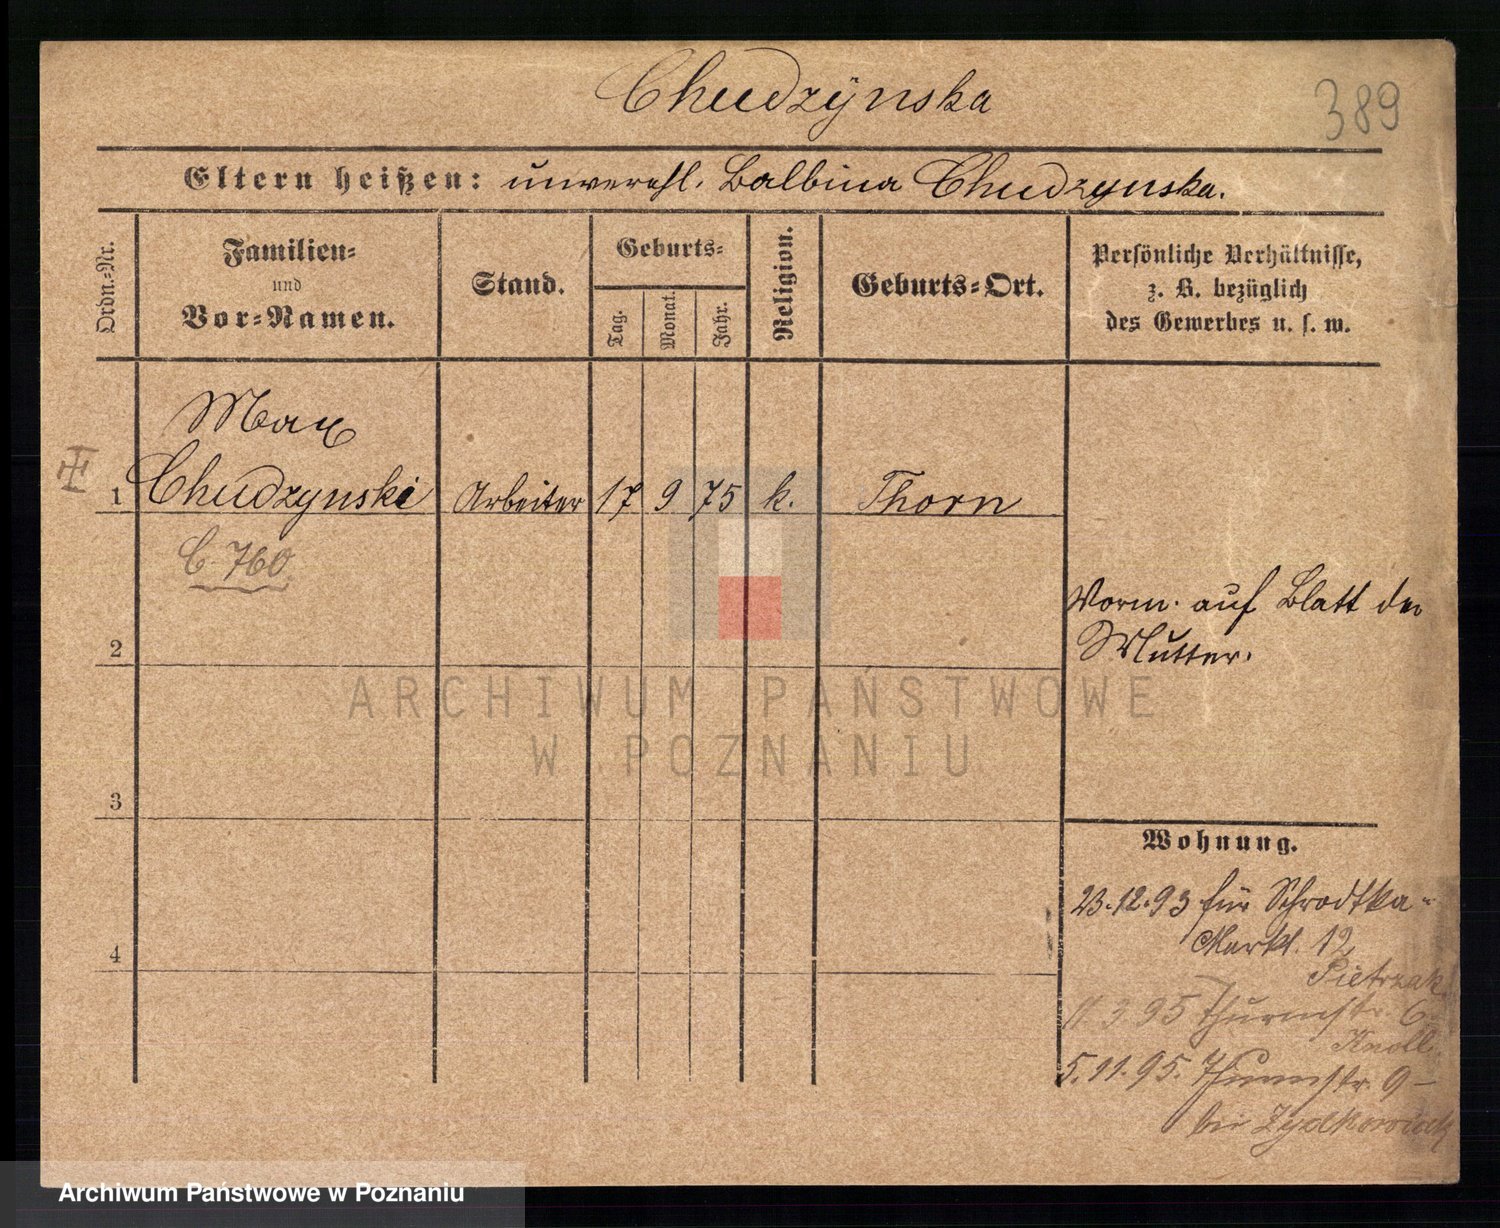 Chudzÿnska
389
Eltern heißen: unverehl. Balbina Chudzynska.
Ordn.-Nr.
Familien-
und
Vor-Namen.
Stand.
Geburts-
Tag.
Monat.
Jahr.
Religion.
Geburts-Ort.
Persönliche Verhältnisse,
z. B. bezüglich
des Gewerbes u. s. w.
Max
1 Chudzynski Arbeiter 17 9 75 k. Thorn
C. 760
Vorm. auf Blatt der
Mutter.
2
ARCHIWUM PAŃSTWOWE
W POZNANIU
3
Wohnung.
23.12.93 für Schrodtka-
Markt. 12
4
Pietrzak
11.3.95 Thurmstr. 6
Knoll
5.11.95. Thurmstr. 9-
bei
Archiwum Państwowe w Poznaniu